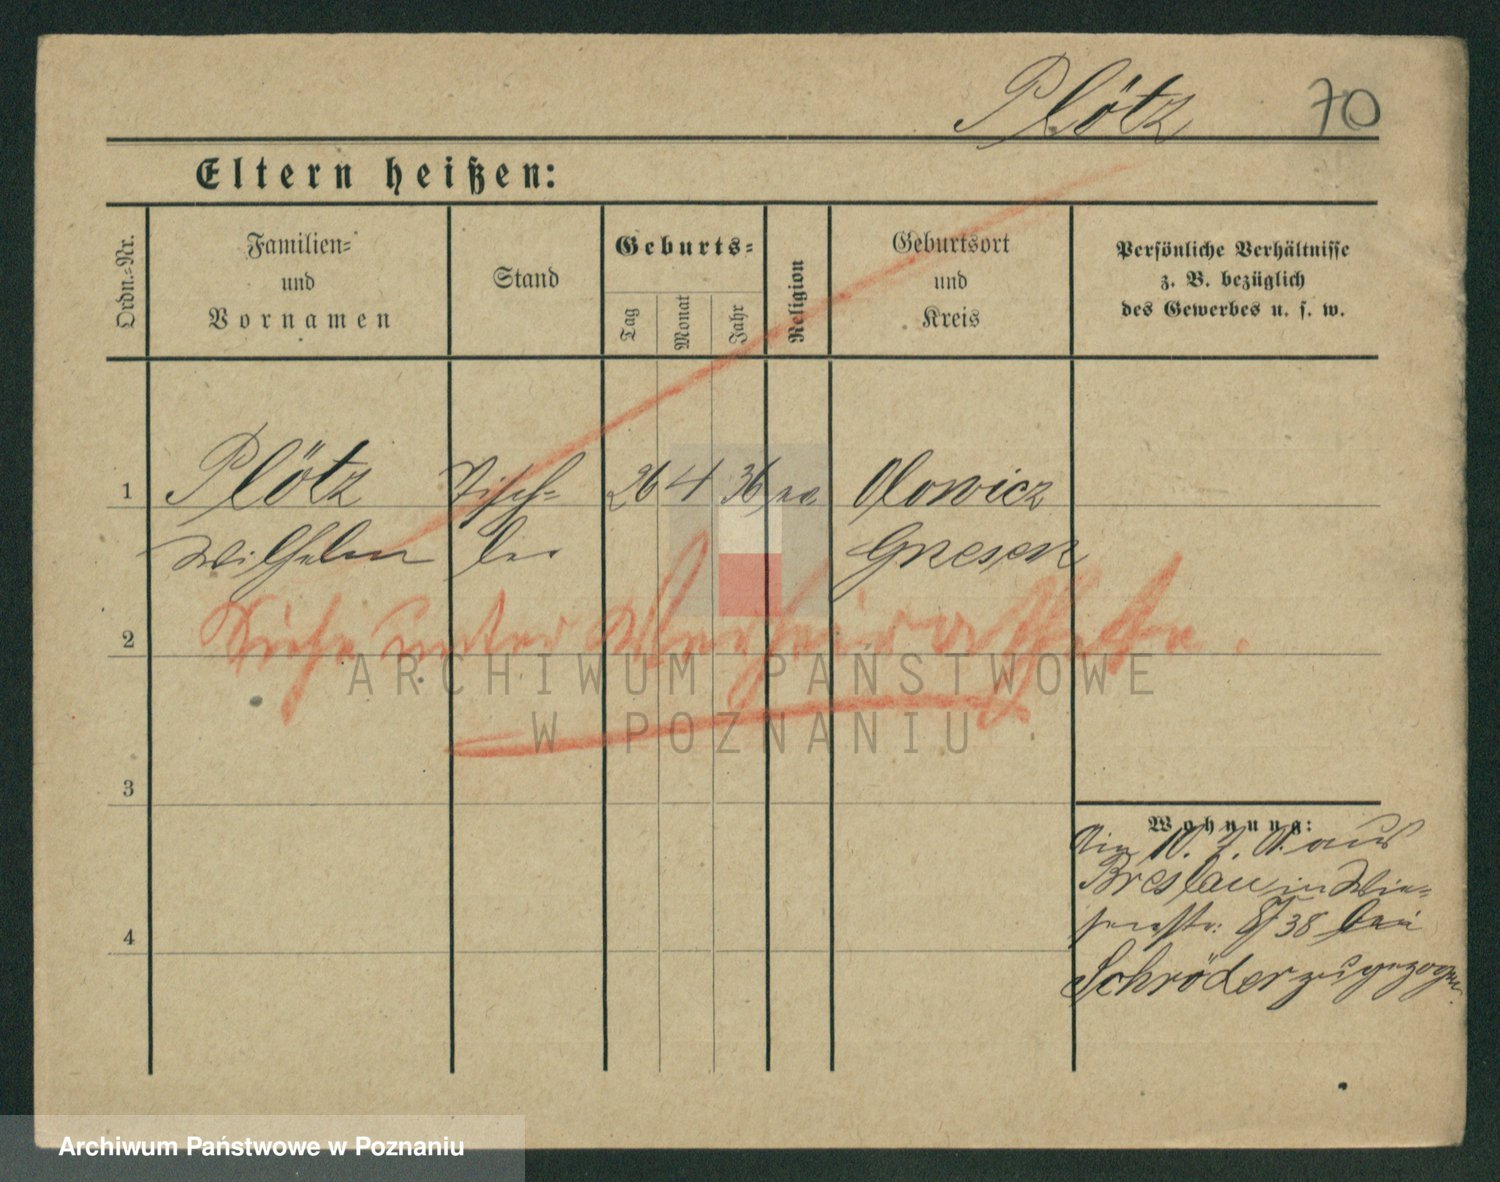 Plötz 70
Eltern heißen:
Ordn.-Nr.
Familien-
und
Vornamen
Stand
Geburts-
Tag
Monat
Jahr
Religion
Geburtsort
und
Kreis
Persönliche Verhältnisse
z. B. bezüglich
des Gewerbes u. s. w.
1 Plötz Tisch- 26 4 36
Wilhelm ler Gnesen
2 Siehe unter Verheirathete.
ARCHIWUM PAŃSTWOWE
W POZNANIU
3
Wohnung:
10. 7. aus
Breslau in Wie-
senstr. 38 bei
4
Schröder zugezogen.
Archiwum Państwowe w Poznaniu